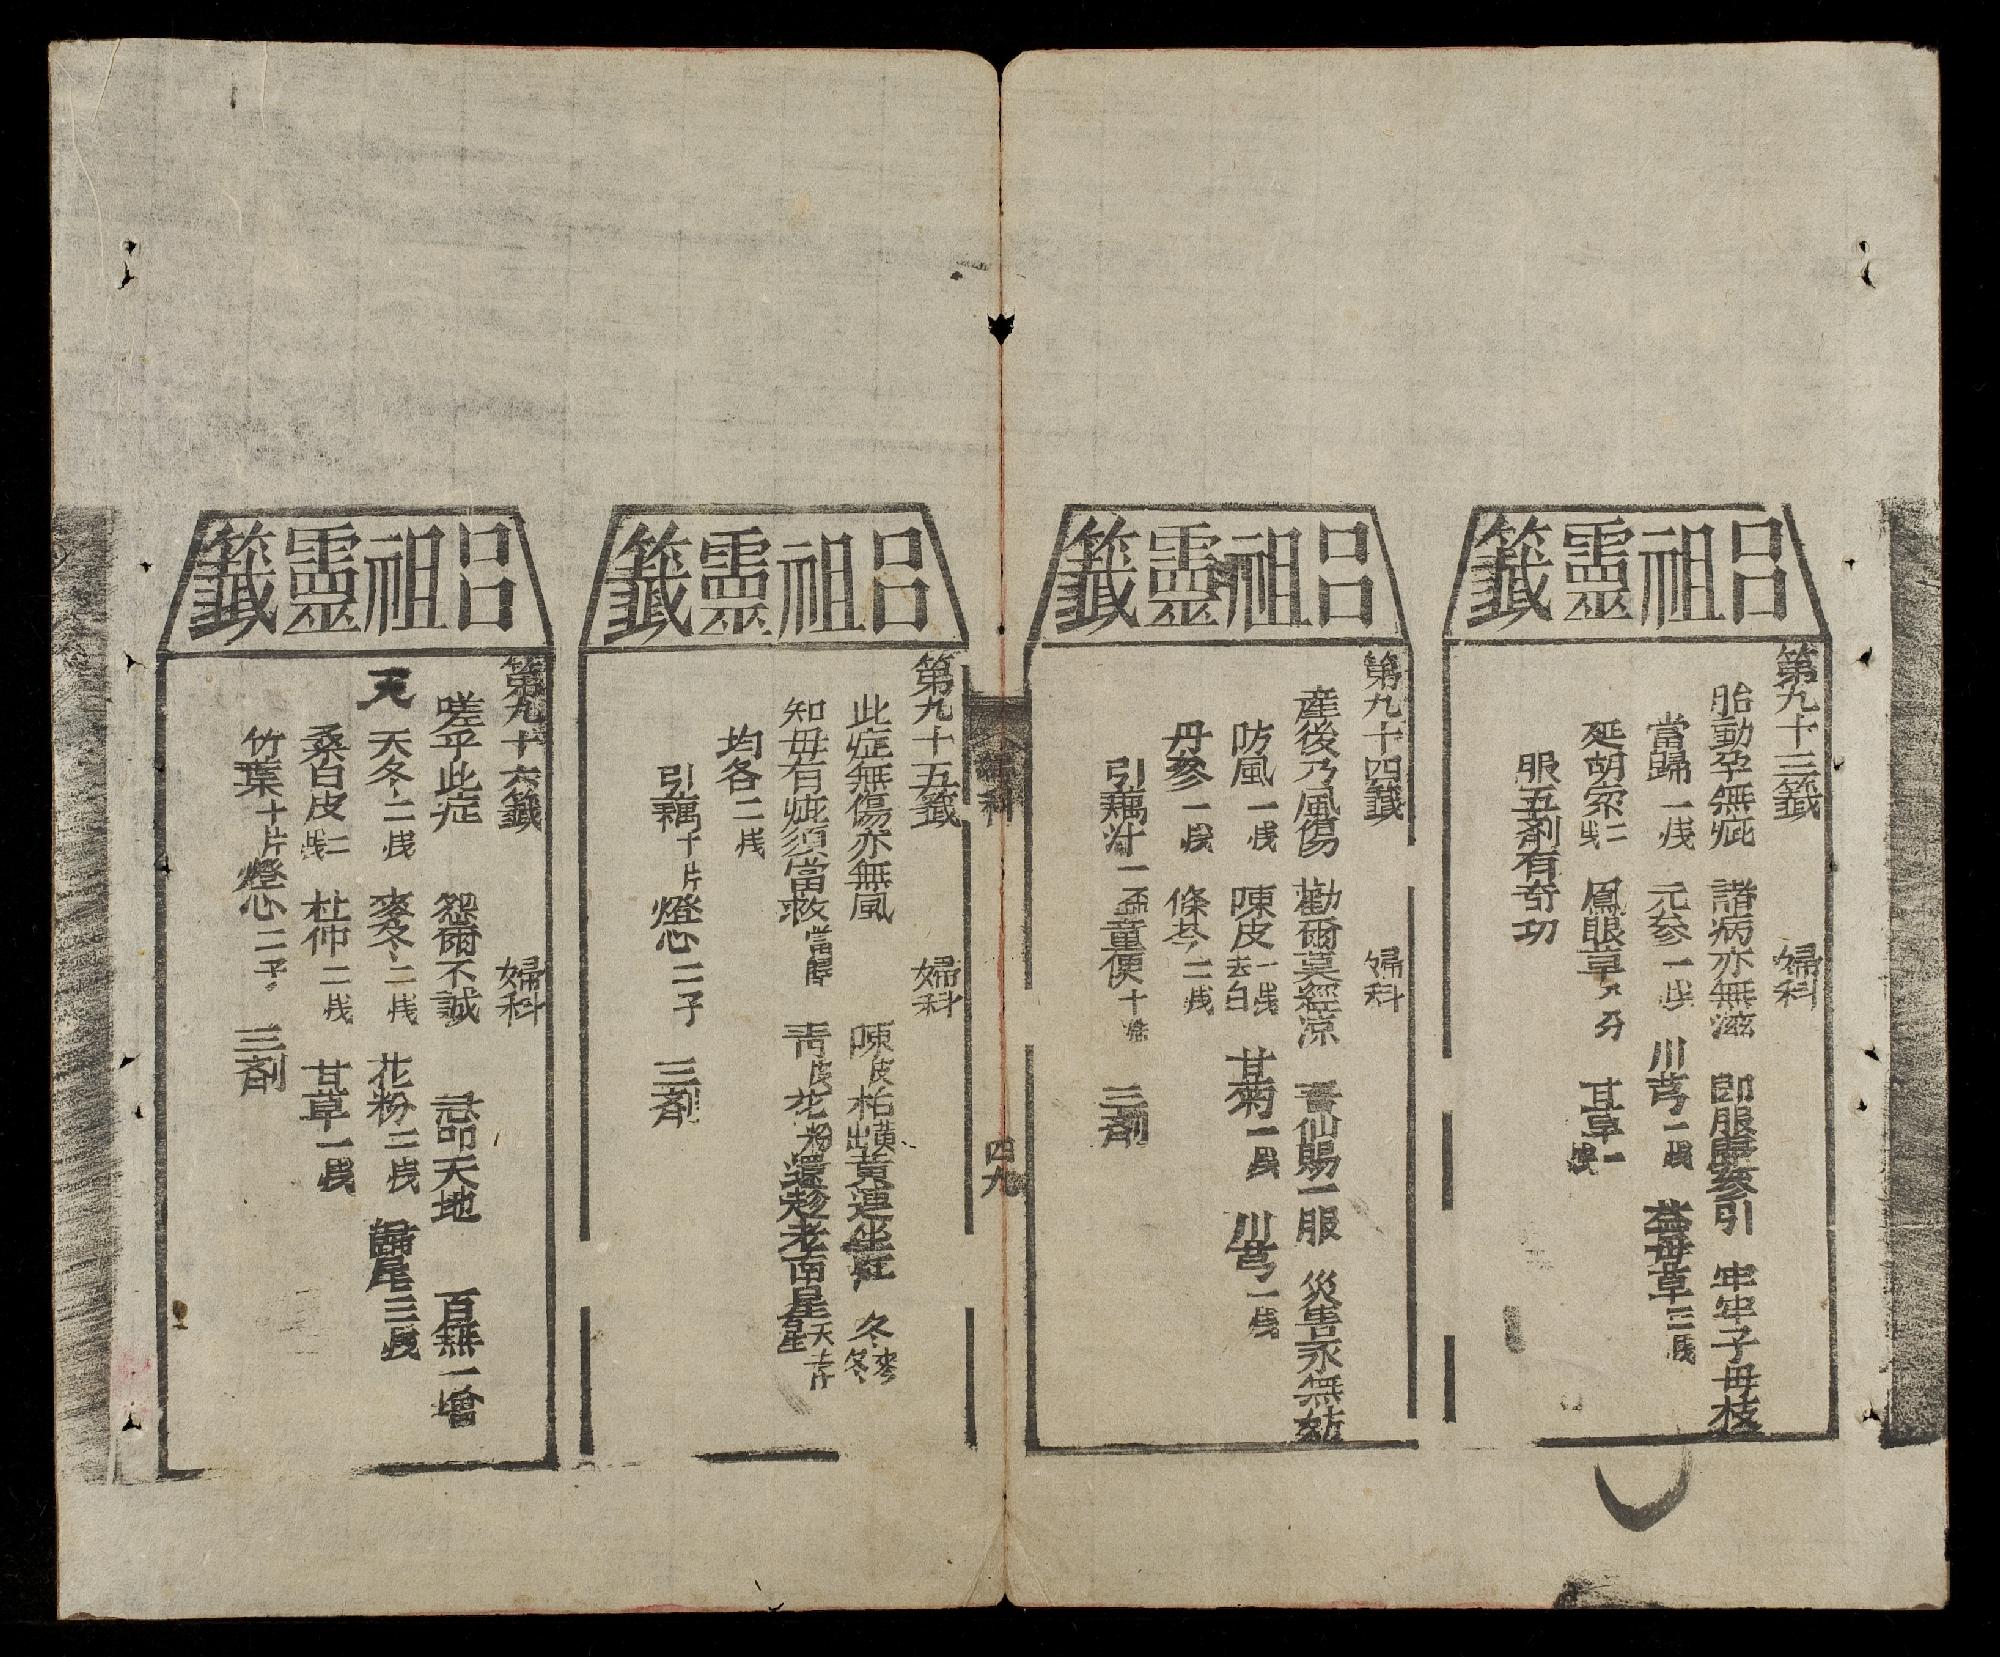 呂祖靈籤
第九十三籤　婦科
胎動孕無疵　諸病亦無滋　即服靈參引　牢牢子毋枝
當歸一戔　元參一戔　川芎一戔　益母草三戔
延胡索二戔　鳳眼草八分　甘草一戔
服五剤有奇功
呂祖靈籤
第九十四籤　婦科
產後乃風傷　勸爾莫經凉　吾仙賜一服　災害永無妨
防風一戔　陳皮一戔去白　甘菊一戔　川芎一戔
丹參一戔　條芩二戔
引藕汁一盃童便十
三剤
婦科
四九
呂祖靈籤
第九十五籤　婦科
此症無傷亦無風　陳皮柏黃連　麥冬
知毋有疵須當救當歸　青皮花粉還趁老南星天冬
均各二戔
引藕十片燈心二子　三剤
呂祖靈籤
第九十六籤　婦科
嗟乎此症　怨爾不誠　忌叩天地　百無一增
天　天冬二戔　麥冬二戔　花粉二戔　歸尾三戔
桑白皮二戔　杜仲二戔　甘草一戔
竹葉十片燈心二子　三剤